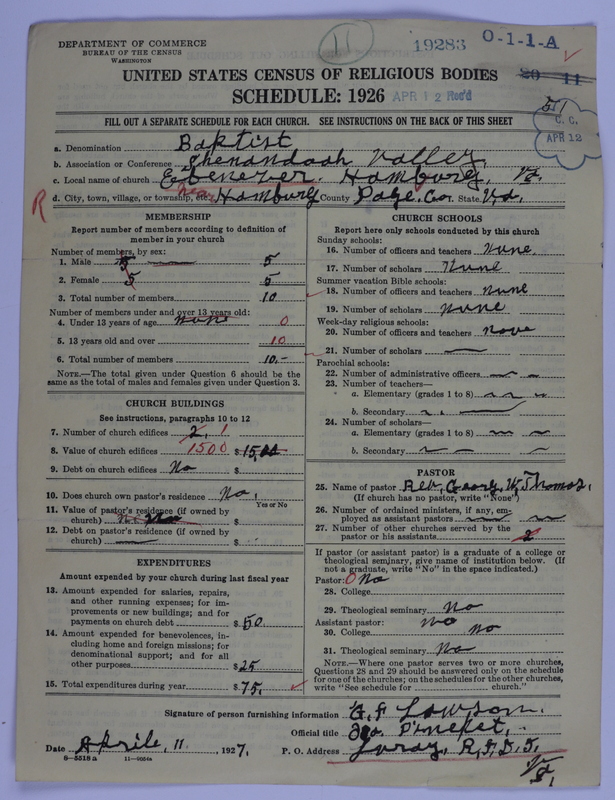 11
19283 0-1-1-A
DEPARTMENT OF COMMERCE
BUREAU OF THE CENSUS
WASHINGTON
UNITED STATES CENSUS OF RELIGIOUS BODIES
20 11
SCHEDULE: 1926 APR 12 Rec'd
51
C. C.
APR 12
FILL OUT A SEPARATE SCHEDULE FOR EACH CHURCH. SEE INSTRUCTIONS ON THE BACK OF THIS SHEET
a. Denomination Baptist
b. Association or Conference Shenandoah Valley.
c. Local name of church Ebenezer. Hamburg, Va.
R d. City, town, village, or township, etc. near Hamburg County Page, Co. State Va.
MEMBERSHIP
Report number of members according to definition of
member in your church
Number of members, by sex:
1. Male 5 5
2. Female 5 5
3. Total number of members 10
Number of members under and over 13 years old:
4. Under 13 years of age none 0
5. 13 years old and over 10
6. Total number of members 10.-
NOTE.—The total given under Question 6 should be
same as the total of males and females given under Question 3.
CHURCH BUILDINGS
See instructions, paragraphs 10 to 12
7. Number of church edifices 2, 1
8. Value of church edifices 1500 $ 15,00
9. Debt on church edifices No $
10. Does church own pastor's residence No,
Yes or No
11. Value of pastor's residence (if owned by
church) No $
12. Debt on pastor's residence (if owned by
church) $
EXPENDITURES
Amount expended by your church during last fiscal year
13. Amount expended for salaries, repairs,
and other running expenses; for im-
provements or new buildings; and for
payments on church debt $50
14. Amount expended for benevolences, in-
cluding home and foreign missions; for
denominational support; and for all
other purposes $25
15. Total expenditures during year $75,
CHURCH SCHOOLS
Report here only schools conducted by this church
Sunday schools:
16. Number of officers and teachers None.
17. Number of scholars None
Summer vacation Bible schools:
18. Number of officers and teachers None
19. Number of scholars None
Week-day religious schools:
20. Number of officers and teachers None
21. Number of scholars
Parochial schools:
22. Number of administrative officers
23. Number of teachers—
a. Elementary (grades 1 to 8)
b. Secondary
24. Number of scholars—
a. Elementary (grades 1 to 8)
b. Secondary
PASTOR
25. Name of pastor Rev. Georg W, Thomas,
(If church has no pastor, write "None")
26. Number of ordained ministers, if any, em-
ployed as assistant pastors
27. Number of other churches served by the
pastor or his assistants 2
If pastor (or assistant pastor) is a graduate of a college or
theological seminary, give name of institution below. (If
not a graduate, write "No" in the space indicated.)
Pastor: 0 No
28. College
29. Theological seminary No
Assistant pastor: No
30. College No
31. Theological seminary No
NOTE.—Where one pastor serves two or more churches,
Questions 28 and 29 should be answered only on the schedule
for one of the churches; on the schedules for the other churches,
write "See schedule for church."
Signature of person furnishing information G. F Lawson.
Official title
Date Aprile, 11. 1927. P. O. Address Luray, R,F,D,
Va
8—5318 a 11—9554a